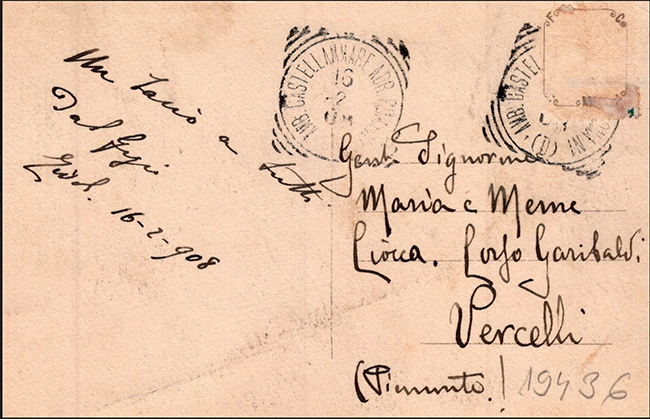 Un bacio a tutti.
Dal Gigi
16-2-908
AMB. CASTELLAMMARE ADR.
16
2
08
AMB. CASTEL
(1)
F C
Gent. Signorine
Maria e Meme
Ciocca. Corso Garibaldi
Vercelli
(Piemonte)
19436